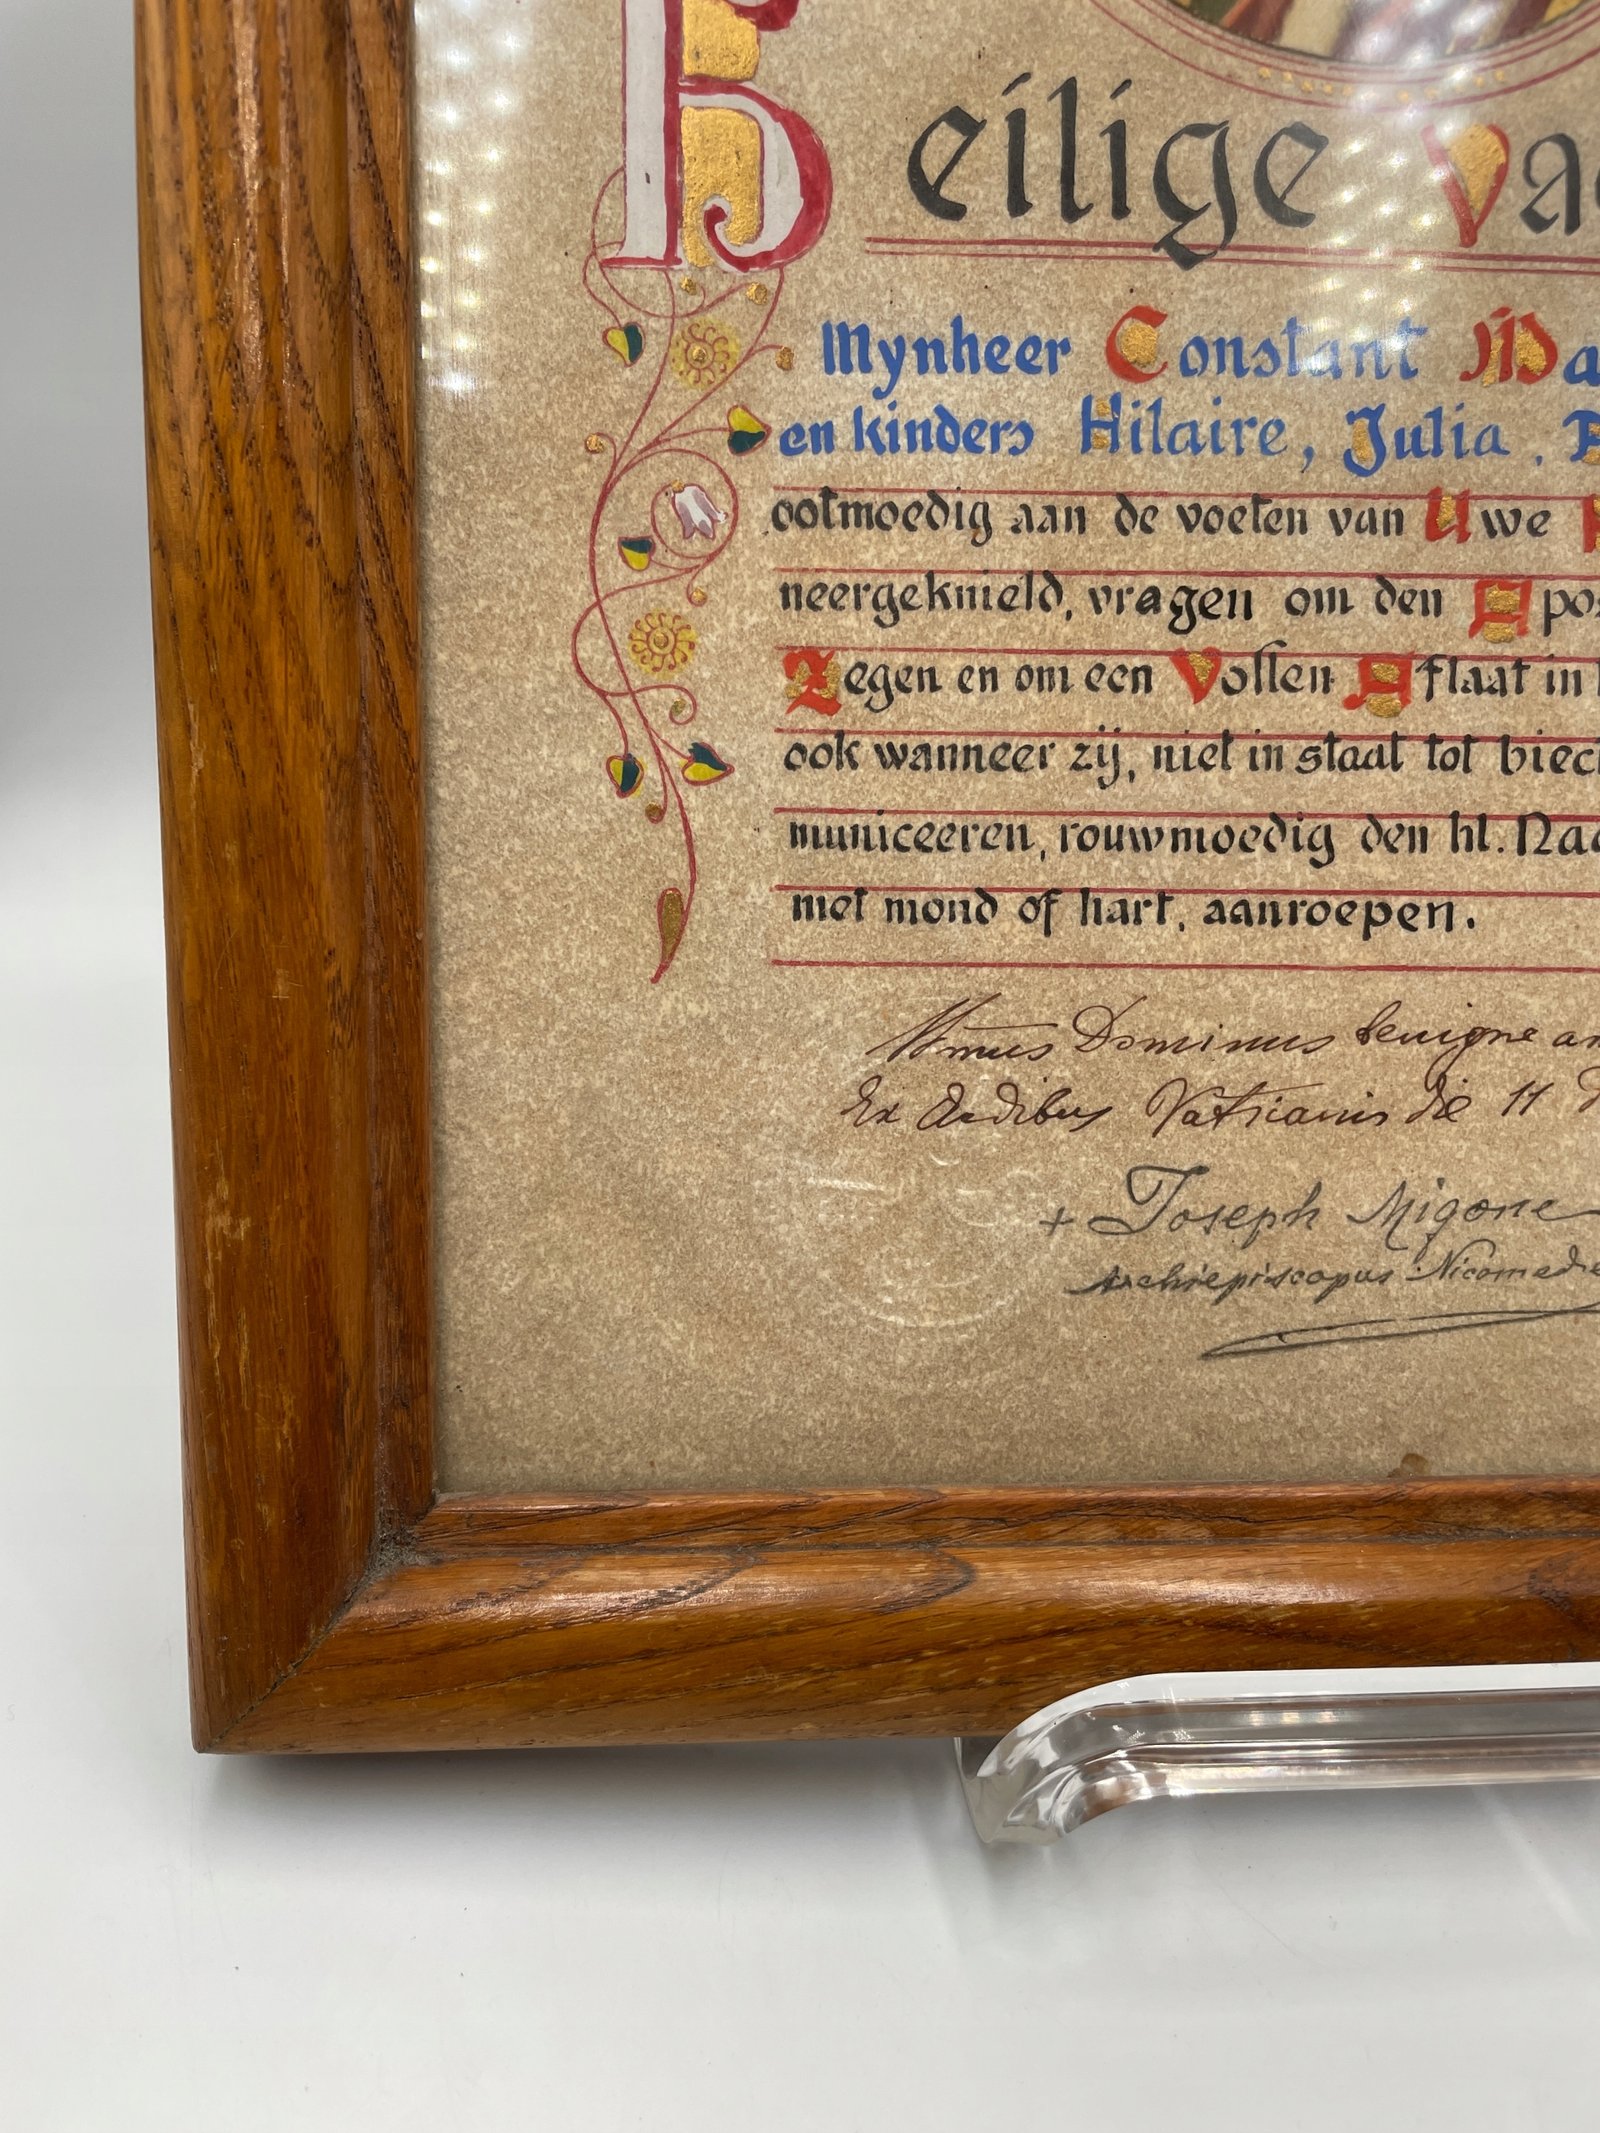 Heilige Va
Mynheer Constant Ma
en kinders Hilaire, Julia,
ootmoedig aan de voeten van Uwe
neergeknield, vragen om den Apos
Zegen en om een Vollen Aflaat in
ook wanneer zij, niet in staat tot biec
municeeren, rouwmoedig den hl. Naa
met mond of hart, aanroepen.
Dominus benigne an
Ex Aedibus Vaticanis die 11
+ Joseph Migone
Archiepiscopus Nicomedie